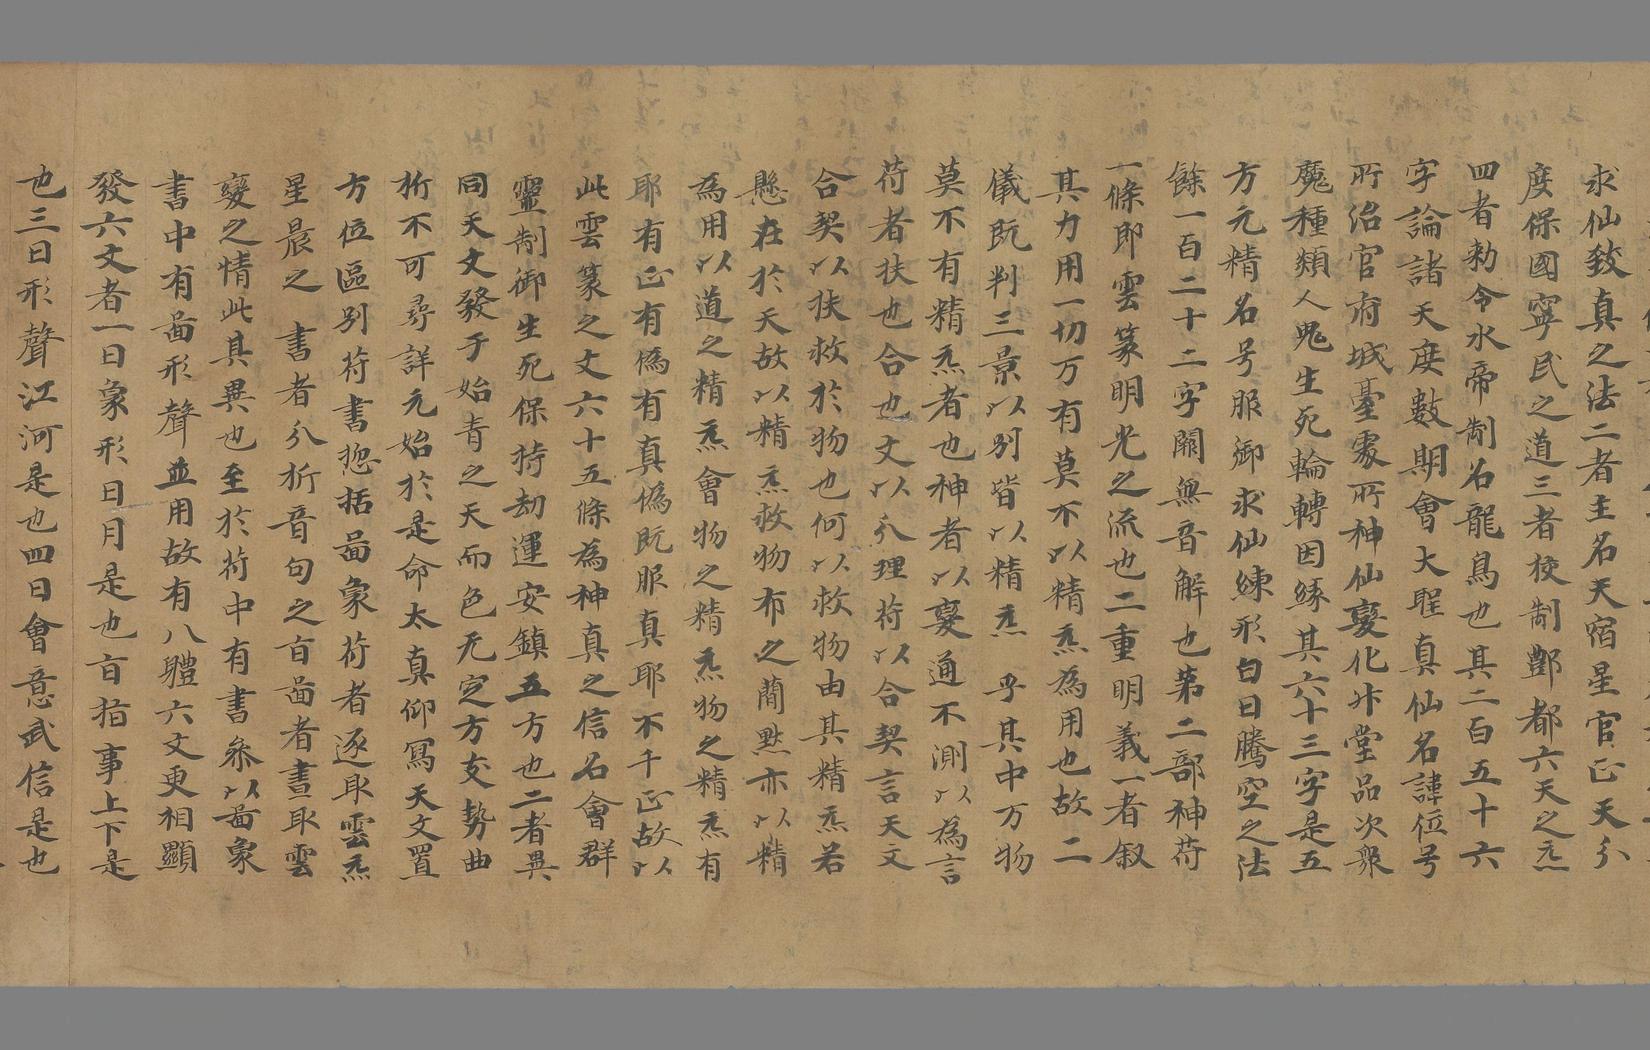 求仙致真之法二者主名天宿星官正天分
度保國寧民之道三者校制酆都六天之炁
四者勑令水帝制名龍鳥也其二百五十六
字論諸天度數期會大聖真仙名諱位号
所治官府城臺處所神仙變化升堂品次衆
魔種類人鬼生死輪轉因緣其六十三字是五
方元精名号服御求仙練形白日騰空之法
餘一百二十二字闕無音解也第二部神符
一條即雲篆明光之流也二重明義一者叙
其力用一切万有莫不以精炁為用也故二
儀既判三景以別皆以精炁 乎其中万物
莫不有精炁者也神者以變通不測以為言
符者扶也合也文以分理符以合契言天文
合契以扶救於物也何以救物由其精炁若
懸在於天故以精炁救物布之蕳㸃亦以精
為用以道之精炁會物之精炁物之精炁有
耶有正有偽有真偽既服真耶不干正故以
此雲篆之文六十五條為神真之信名會群
靈制御生死保持劫運安鎮五方也二者異
同天文發于始青之天而色无定方文勢曲
折不可尋詳元始於是命太真仰寫天文置
方位區別符書惣括啚象符者逐取雲炁
星晨之 書者分析音句之百啚者畫取雲
變之情此其異也至於符中有書叅以啚象
書中有啚形聲並用故有八體六文更相顯
發六文者一曰象形日月是也百指事上下是
也三曰形聲江河是也四曰會意武信是也